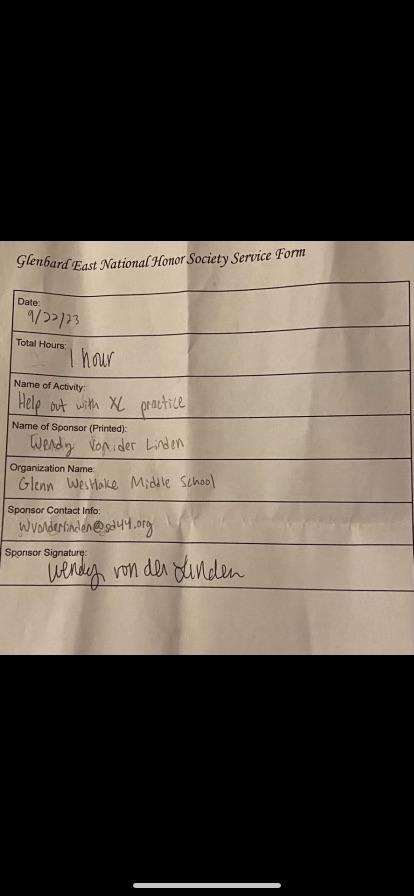 Glenbard East National Honor Society Service Form
Date:
9/22/23
Total Hours:
1 hour
Name of Activity:
Help out with XC practice
Name of Sponsor (Printed):
Wendy von der Linden
Organization Name:
Glenn Westlake Middle School
Sponsor Contact Info:
wvonderlinden@sd44.org
Sponsor Signature:
Wendy von der Linden